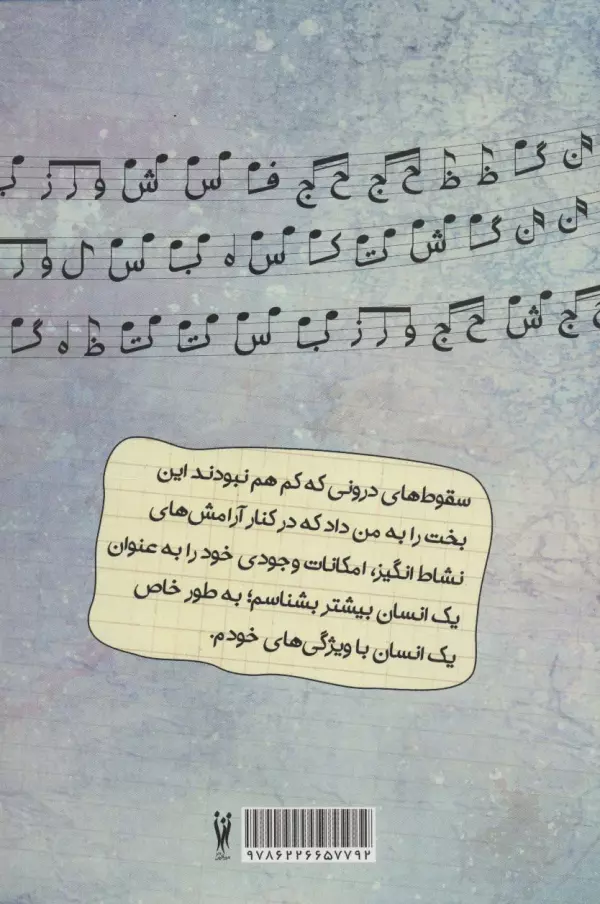 ن گ ظ ظ ح ج ح ج ف س ش و ر ز ب
ن ن گ ش ت ک س ه ب س ل و ر
ح ج ش ح ج و ر ز ب س ت ت ظ ه گ
سقوط‌های درونی که کم هم نبودند این
بخت را به من داد که در کنار آرامش‌های
نشاط انگیز، امکانات وجودی خود را به عنوان
یک انسان بیشتر بشناسم؛ به طور خاص
یک انسان با ویژگی‌های خودم.
۹۷۸۶۲۲۶۶۵۷۷۹۲